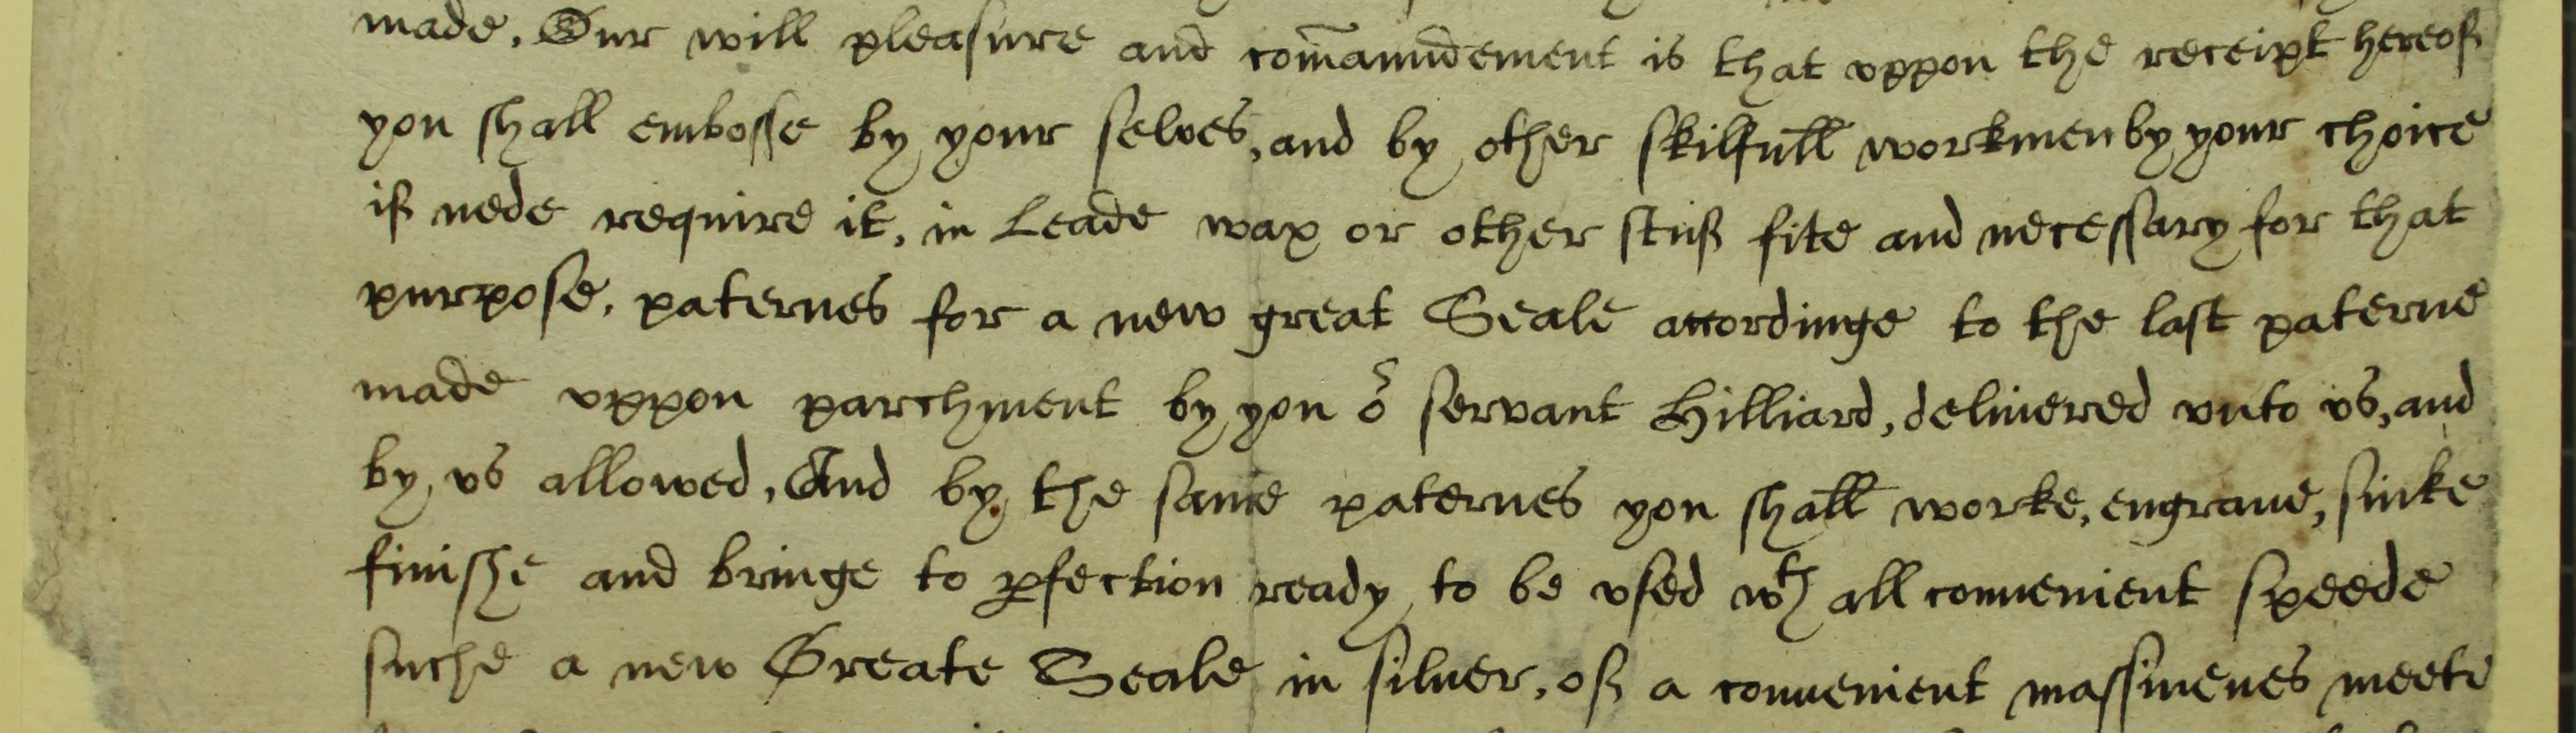 made. Our will pleasure and com̄aundement is that vppon the receipt hereof
you shall embosse by your selves, and by other skilfull workmen by your choice
if nede require it, in Leade wax or other stuf fite and necessary for that
purpose, paternes for a new great Seale accordinge to the last paterne
made vppon parchment by you oʳ servant Hilliard, deliuered vnto vs, and
by vs allowed, And by the same paternes you shall worke, engraue, sinke
finishe and bringe to ꝑfection ready to be vsed wᵗʰ all conuenient speede
suche a new Greate Seale in siluer, of a conuenient massinenes meete